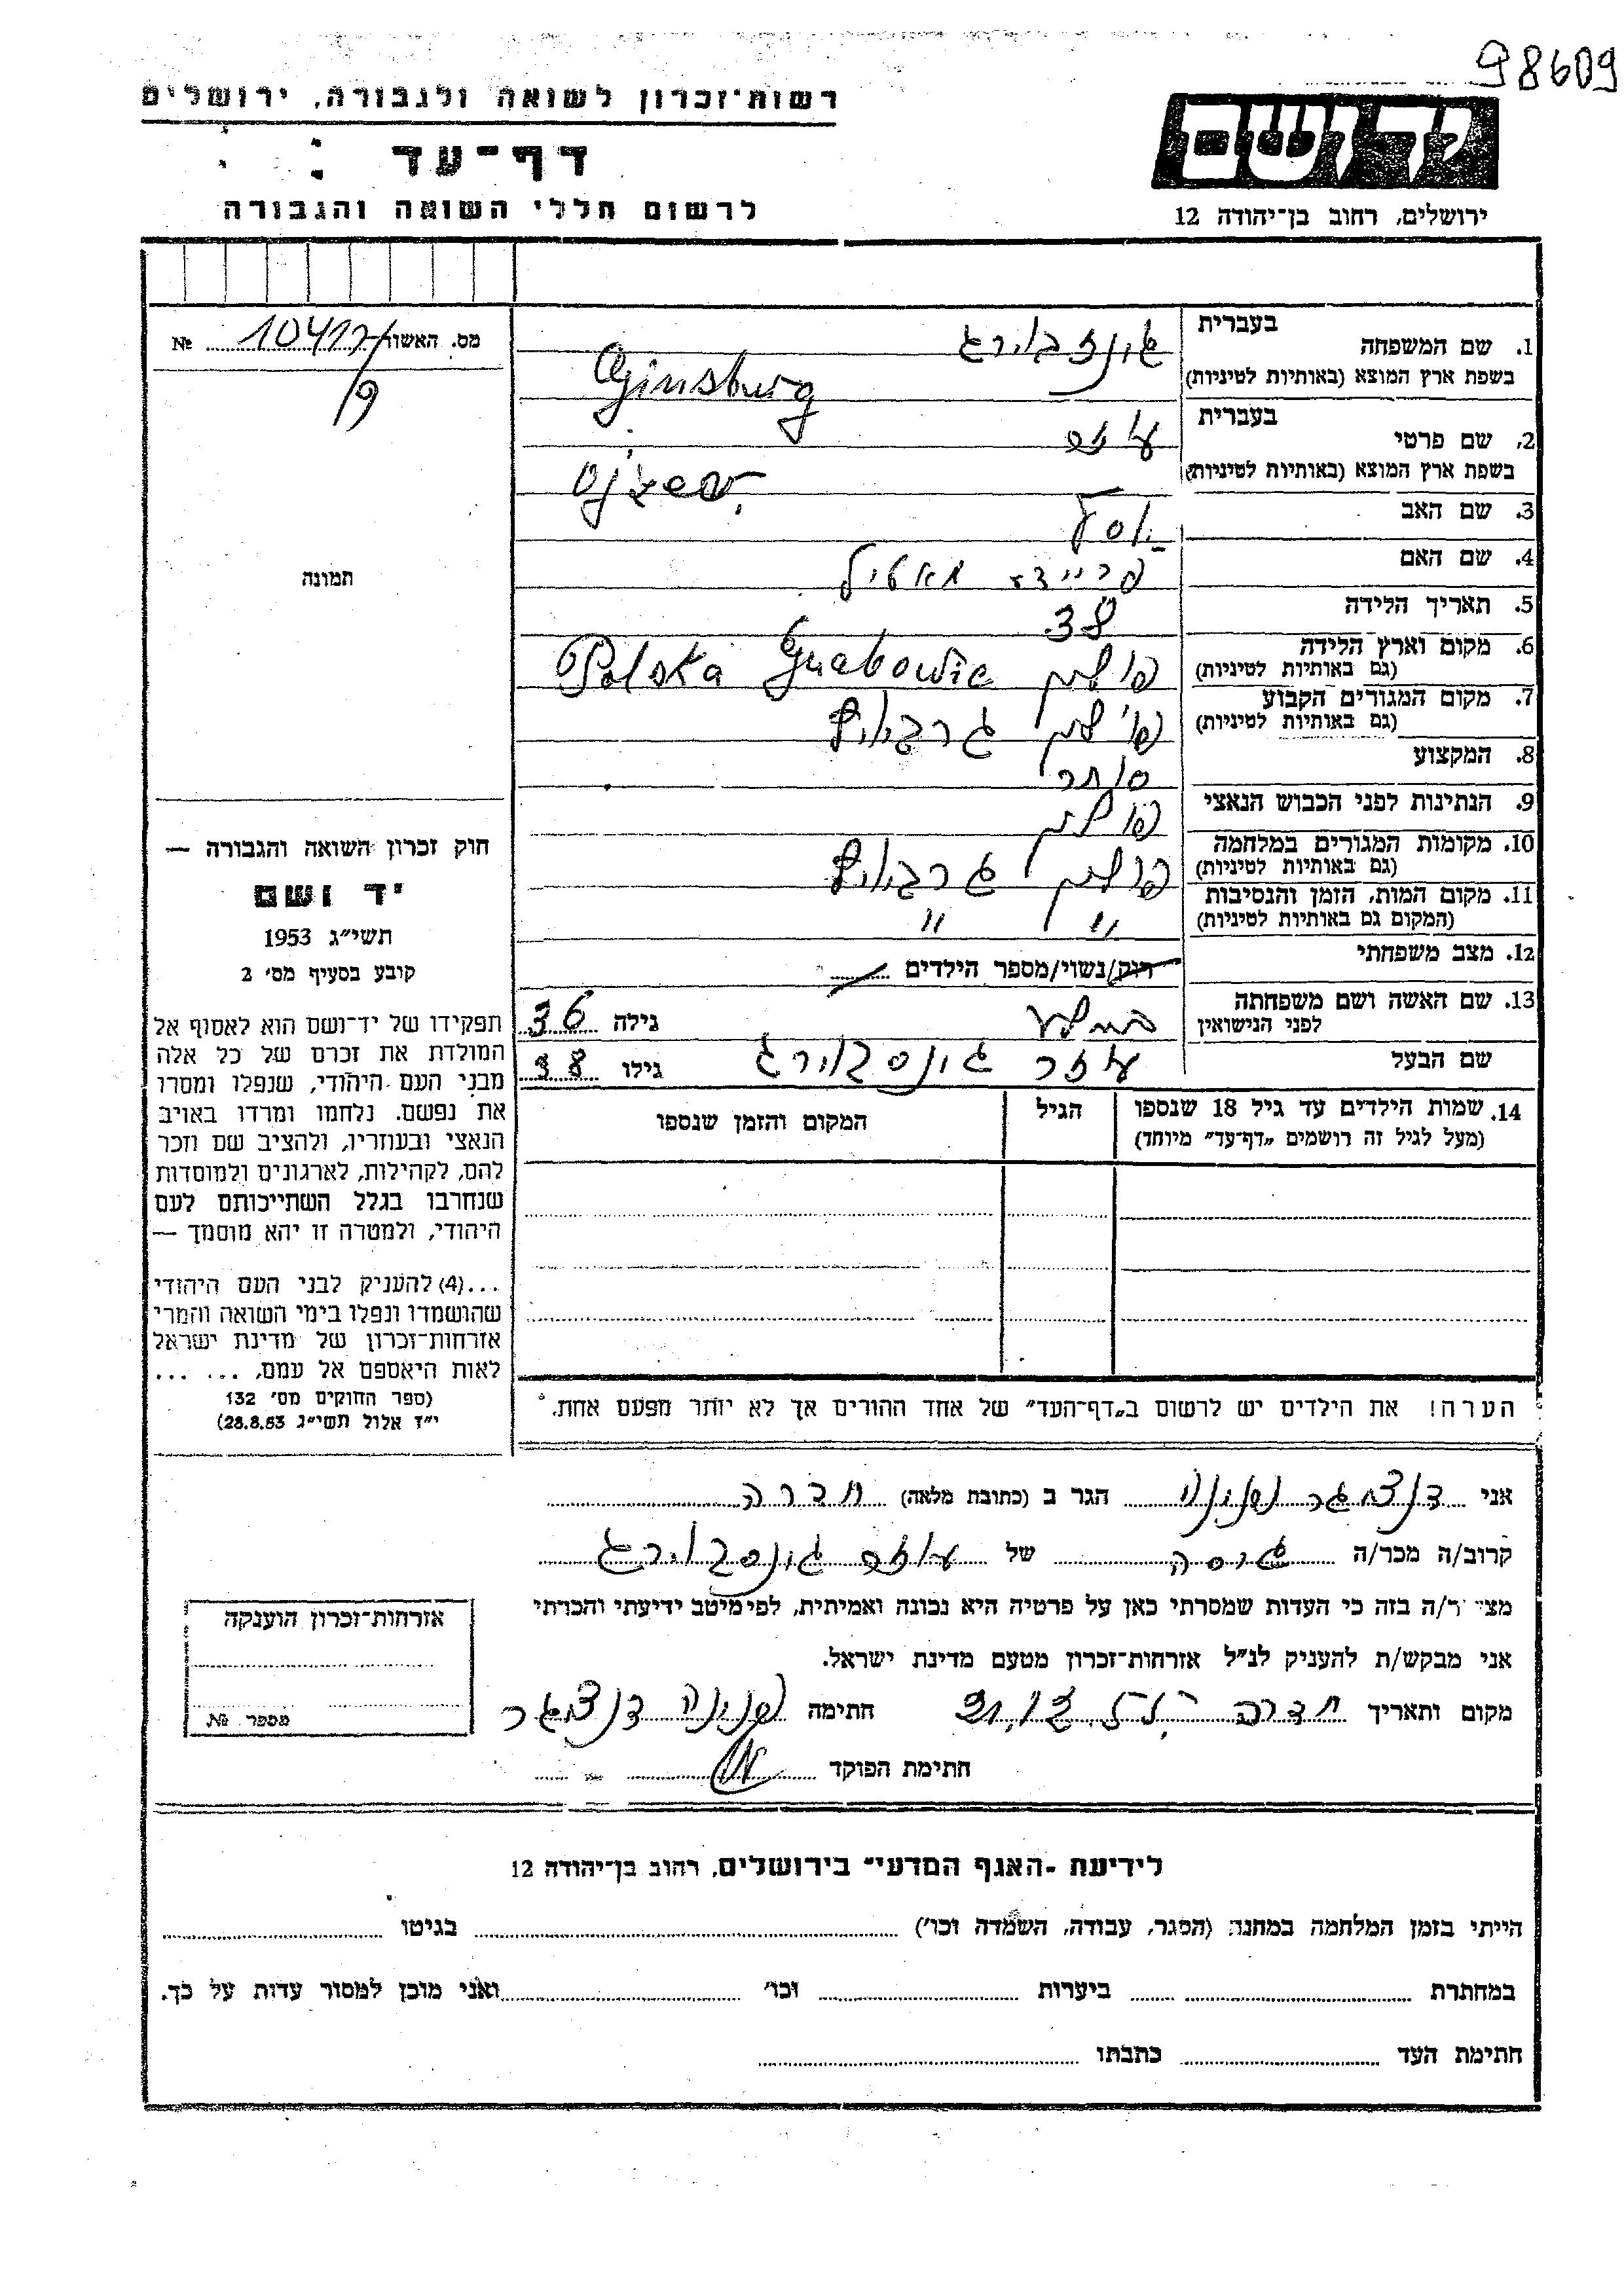 98609
רשות־זכרון לשואה ולגבורה, ירושלים
דף־עד
לרשום חללי השואה והגבורה
ידושם
ירושלים, רחוב בן־יהודה 12
מס. האשור 10417/9 №
תמונה
1. שם המשפחה בעברית
בשפת ארץ המוצא (באותיות לטיניות) Ginsburg
2. שם פרטי בעברית
בשפת ארץ המוצא (באותיות לטיניות)
3. שם האב יוסף
4. שם האם פריידע מאטיל
5. תאריך הלידה 38
6. מקום וארץ הלידה פולין Polska Grabowic
(גם באותיות לטיניות)
7. מקום המגורים הקבוע פולין גרבוביץ
(גם באותיות לטיניות)
8. המקצוע סוחר
9. הנתינות לפני הכבוש הנאצי פולין
10. מקומות המגורים במלחמה פולין גרבוביץ
(גם באותיות לטיניות)
11. מקום המות, הזמן והנסיבות " "
(המקום גם באותיות לטיניות)
12. מצב משפחתי רווק/נשוי/מספר הילדים
13. שם האשה ושם משפחתה
לפני הנישואין גילה 36
שם הבעל עוזר גינסבורג גילו 38
14. שמות הילדים עד גיל 18 שנספו הגיל המקום והזמן שנספו
(מעל לגיל זה רושמים „דף־עד״ מיוחד)
הערה! את הילדים יש לרשום ב„דף־העד״ של אחד ההורים אך לא יותר מפעם אחת.
חוק זכרון השואה והגבורה —
יד ושם
תשי״ג 1953
קובע בסעיף מס׳ 2
תפקידו של יד־ושם הוא לאסוף אל
המולדת את זכרם של כל אלה
מבני העם היהודי, שנפלו ומסרו
את נפשם. נלחמו ומרדו באויב
הנאצי ובעוזריו, ולהציב שם וזכר
להם, לקהילות, לארגונים ולמוסדות
שנחרבו בגלל השתייכותם לעם
היהודי, ולמטרה זו יהא מוסמך —
...(4) להעניק לבני העם היהודי
שהושמדו ונפלו בימי השואה והמרי
אזרחות־זכרון של מדינת ישראל
לאות היאספם אל עמם, ... ...
(ספר החוקים מס׳ 132
י״ד אלול תשי״ג 28.8.53)
אני דנציגר הגר ב (כתובת מלאה) חדרה
קרוב/ה מכר/ה גיסה של עוזר גינסבורג
מצהיר/ה בזה כי העדות שמסרתי כאן על פרטיה היא נכונה ואמיתית, לפי מיטב ידיעתי והכרתי
אני מבקש/ת להעניק לנ״ל אזרחות־זכרון מטעם מדינת ישראל.
מקום ותאריך חדרה חתימה דנציגר
חתימת הפוקד
אזרחות־זכרון הוענקה
מספר №
לידיעת ־האגף המדעי״ בירושלים, רחוב בן־יהודה 12
הייתי בזמן המלחמה במחנה (הסגר, עבודה, השמדה וכו׳) בגיטו
במחתרת ביערות וכו׳ ואני מוכן למסור עדות על כך.
חתימת העד כתבתו